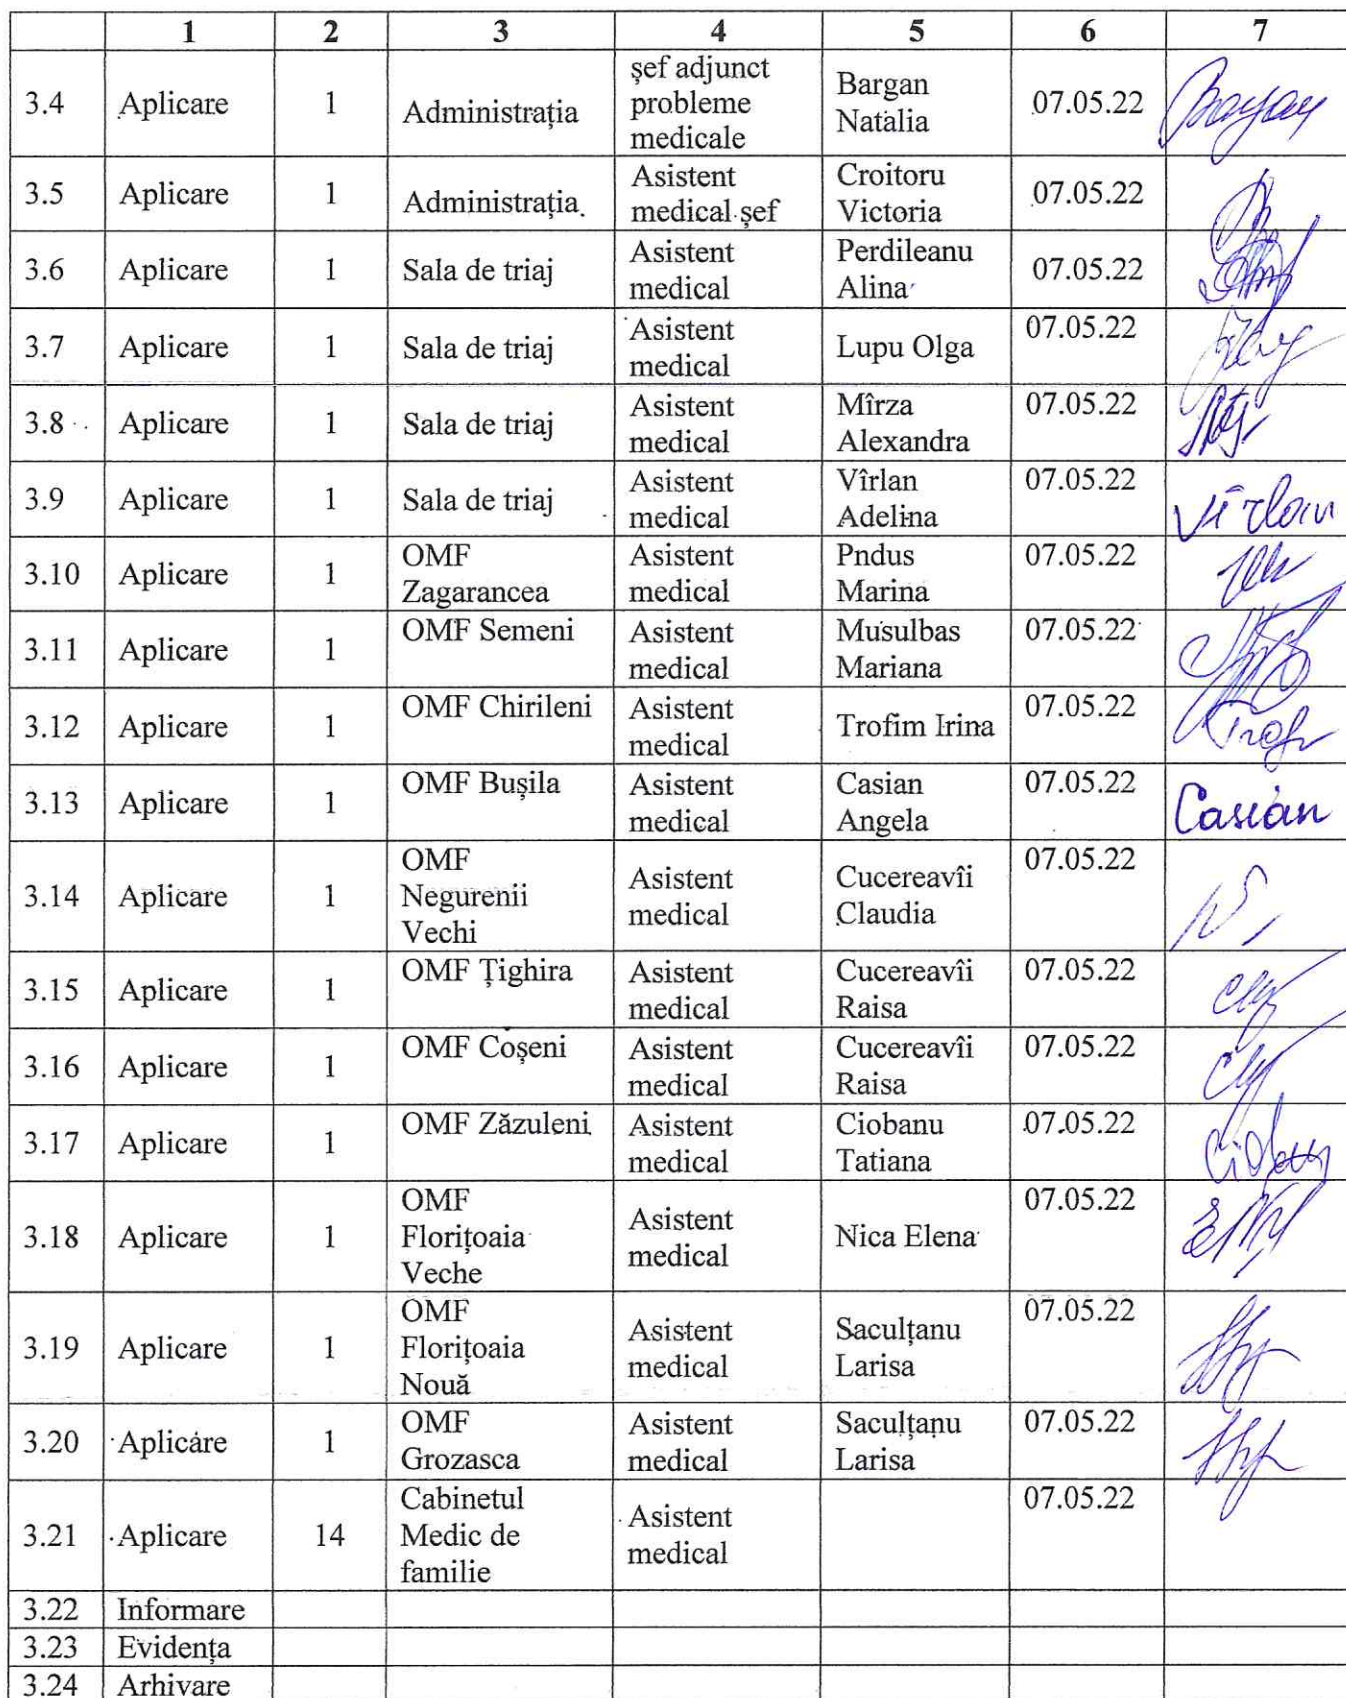 1 2 3 4 5 6 7
3.4 Aplicare 1 Administrația șef adjunct probleme medicale Bargan Natalia 07.05.22
3.5 Aplicare 1 Administrația Asistent medical șef Croitoru Victoria 07.05.22
3.6 Aplicare 1 Sala de triaj Asistent medical Perdileanu Alina 07.05.22
3.7 Aplicare 1 Sala de triaj Asistent medical Lupu Olga 07.05.22
3.8 Aplicare 1 Sala de triaj Asistent medical Mîrza Alexandra 07.05.22
3.9 Aplicare 1 Sala de triaj Asistent medical Vîrlan Adelina 07.05.22 Vîrlan
3.10 Aplicare 1 OMF Zagarancea Asistent medical Pndus Marina 07.05.22
3.11 Aplicare 1 OMF Semeni Asistent medical Musulbas Mariana 07.05.22
3.12 Aplicare 1 OMF Chirileni Asistent medical Trofim Irina 07.05.22
3.13 Aplicare 1 OMF Bușila Asistent medical Casian Angela 07.05.22 Casian
3.14 Aplicare 1 OMF Negurenii Vechi Asistent medical Cucereavîi Claudia 07.05.22
3.15 Aplicare 1 OMF Țighira Asistent medical Cucereavîi Raisa 07.05.22
3.16 Aplicare 1 OMF Coșeni Asistent medical Cucereavîi Raisa 07.05.22
3.17 Aplicare 1 OMF Zăzuleni Asistent medical Ciobanu Tatiana 07.05.22
3.18 Aplicare 1 OMF Florițoaia Veche Asistent medical Nica Elena 07.05.22
3.19 Aplicare 1 OMF Florițoaia Nouă Asistent medical Saculțanu Larisa 07.05.22
3.20 Aplicare 1 OMF Grozasca Asistent medical Saculțanu Larisa 07.05.22
3.21 Aplicare 14 Cabinetul Medic de familie Asistent medical 07.05.22
3.22 Informare
3.23 Evidența
3.24 Arhivare